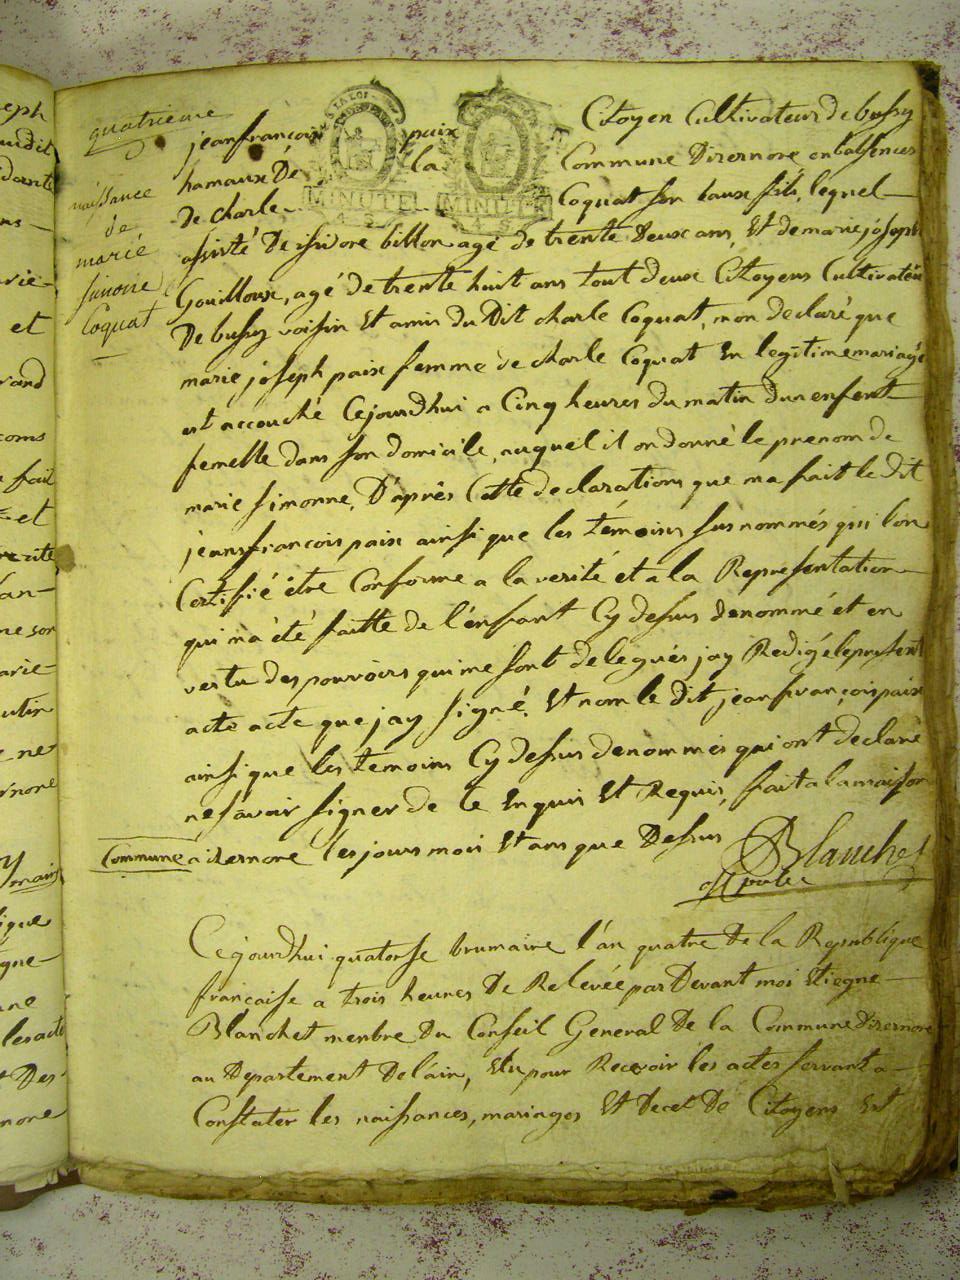 quatrieme
naissance
de
marie
simone
Coquat
jean francois paix Citoyen Cultivateur de bussy
hamaux De la Commune Dizernore en labsences
de charle Coquat son baux fils, lequel
MINUTE MINUTE
assisté De isidore billon agé de trente Deux ans, Et de marie joseph
Gouilloux, agé de trente huit ans tout deux Citoyens Cultivateur
De bussy voisin Et amis du Dit charle Coquat, mon declaré que
marie joseph paix femme de charle Coquat En legitime mariage
est accouché Cejourdhui a Cinq heures du matin dun enfent
femelle dans son domicile, auquel il on donné le prenom de
marie simonne, D'après Cette declarations que ma fait le dit
jeans francois paix ainsi que les témoins sus nommés qui l'on
Certifié être Conforme a la verité et a la Representation
qui m'a été faitte de l'enfant Cy dessus denommé et en
vertu des pouvoirs qui me sont delegués jay Redigé le present
acte acte que jay signé, Et nom le dit jean françois paix
ainsi que les temoins Cy dessus denommés qui ont declaré
ne savoir signer de ce Enquis Et Requis, fait a la maison
Commune a izernore les jours mois Et ans que Dessus
Blanchet
Cejourdhui quatorse brumaire l'an quatre De la Republique
francaise a trois heures De Relevée par Devant moi Etiegne
Blanchet menbre Du Conseil General De la Commune dizernore
au Departement Delain, Elu pour Recevoir les actes servant a
Constater les naissances, mariages Et Decet De Citoyens Est